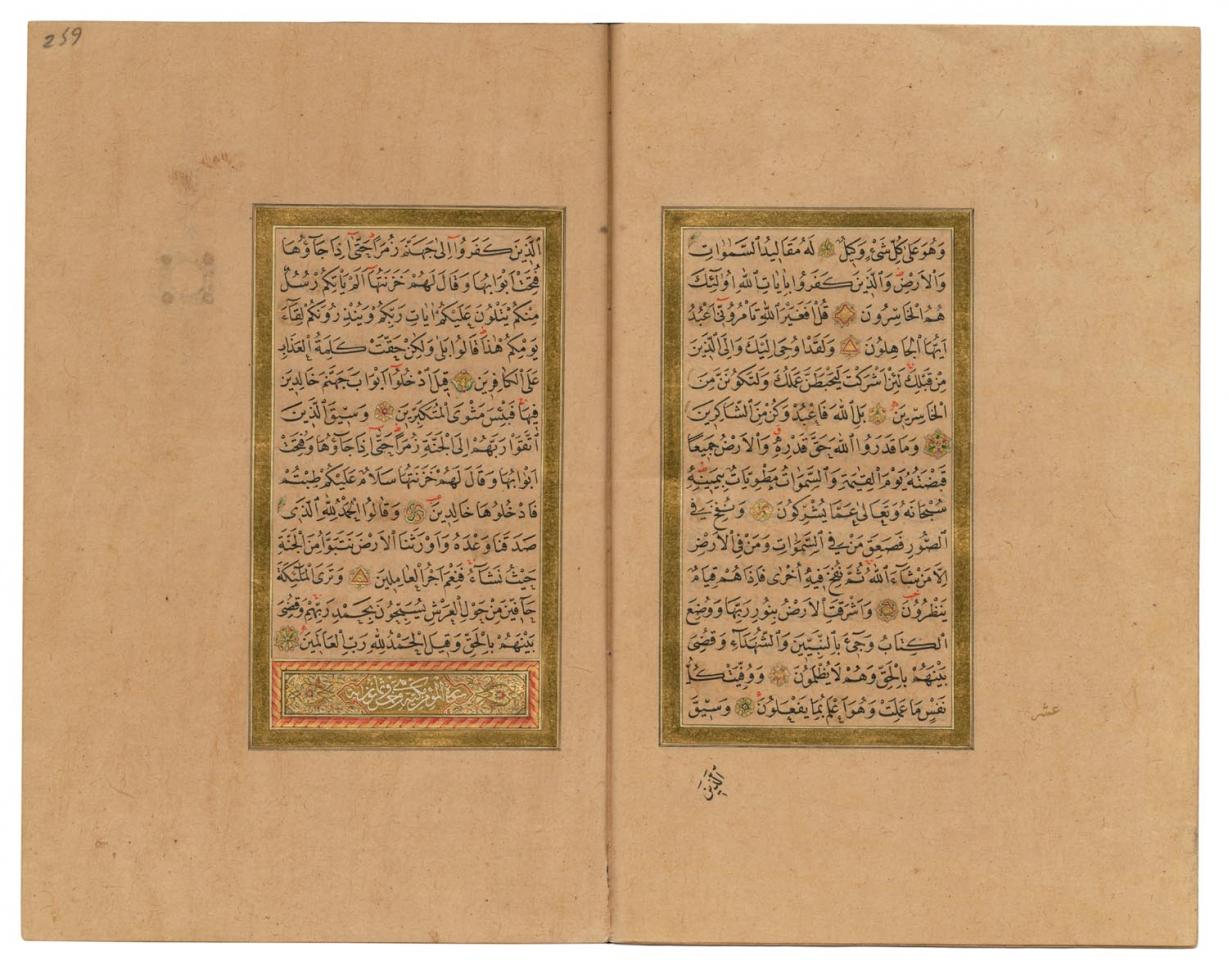 وَهُوَ عَلٰى كُلِّ شَيْءٍ وَكِيلٌ لَهُ مَقَالِيدُ السَّمٰوَاتِ
وَالْاَرْضِ وَالَّذِينَ كَفَرُوا بِاٰيَاتِ اللّٰهِ اُولٰئِكَ
هُمُ الْخَاسِرُونَ قُلْ اَفَغَيْرَ اللّٰهِ تَاْمُرُونِّى اَعْبُدُ
اَيُّهَا الْجَاهِلُونَ وَلَقَدْ اُوحِىَ اِلَيْكَ وَاِلَى الَّذِينَ
مِنْ قَبْلِكَ لَئِنْ اَشْرَكْتَ لَيَحْبَطَنَّ عَمَلُكَ وَلَتَكُونَنَّ مِنَ
الْخَاسِرِينَ بَلِ اللّٰهَ فَاعْبُدْ وَكُنْ مِنَ الشَّاكِرِينَ
وَمَا قَدَرُوا اللّٰهَ حَقَّ قَدْرِهِ وَالْاَرْضُ جَمِيعًا
قَبْضَتُهُ يَوْمَ الْقِيٰمَةِ وَالسَّمٰوَاتُ مَطْوِيَّاتٌ بِيَمِينِهِ
سُبْحَانَهُ وَتَعَالٰى عَمَّا يُشْرِكُونَ وَنُفِخَ فِى
الصُّورِ فَصَعِقَ مَنْ فِى السَّمٰوَاتِ وَمَنْ فِى الْاَرْضِ
اِلَّا مَنْ شَاءَ اللّٰهُ ثُمَّ نُفِخَ فِيهِ اُخْرٰى فَاِذَا هُمْ قِيَامٌ
يَنْظُرُونَ وَاَشْرَقَتِ الْاَرْضُ بِنُورِ رَبِّهَا وَوُضِعَ
الْكِتَابُ وَجِىءَ بِالنَّبِيِّينَ وَالشُّهَدَاءِ وَقُضِىَ
بَيْنَهُمْ بِالْحَقِّ وَهُمْ لَا يُظْلَمُونَ وَوُفِّيَتْ كُلُّ
نَفْسٍ مَا عَمِلَتْ وَهُوَ اَعْلَمُ بِمَا يَفْعَلُونَ وَسِيقَ
عشر
اَلَّذِينَ
259
الَّذِينَ كَفَرُوا اِلٰى جَهَنَّمَ زُمَرًا حَتّٰى اِذَا جَاؤُهَا
فُتِحَتْ اَبْوَابُهَا وَقَالَ لَهُمْ خَزَنَتُهَا اَلَمْ يَاْتِكُمْ رُسُلٌ
مِنْكُمْ يَتْلُونَ عَلَيْكُمْ اٰيَاتِ رَبِّكُمْ وَيُنْذِرُونَكُمْ لِقَاءَ
يَوْمِكُمْ هٰذَا قَالُوا بَلٰى وَلٰكِنْ حَقَّتْ كَلِمَةُ الْعَذَابِ
عَلَى الْكَافِرِينَ قِيلَ ادْخُلُوا اَبْوَابَ جَهَنَّمَ خَالِدِينَ
فِيهَا فَبِئْسَ مَثْوَى الْمُتَكَبِّرِينَ وَسِيقَ الَّذِينَ
اتَّقَوْا رَبَّهُمْ اِلَى الْجَنَّةِ زُمَرًا حَتّٰى اِذَا جَاؤُهَا وَفُتِحَتْ
اَبْوَابُهَا وَقَالَ لَهُمْ خَزَنَتُهَا سَلَامٌ عَلَيْكُمْ طِبْتُمْ
فَادْخُلُوهَا خَالِدِينَ وَقَالُوا الْحَمْدُ لِلّٰهِ الَّذِى
صَدَقَنَا وَعْدَهُ وَاَوْرَثَنَا الْاَرْضَ نَتَبَوَّاُ مِنَ الْجَنَّةِ
حَيْثُ نَشَاءُ فَنِعْمَ اَجْرُ الْعَامِلِينَ وَتَرَى الْمَلٰئِكَةَ
حَافِّينَ مِنْ حَوْلِ الْعَرْشِ يُسَبِّحُونَ بِحَمْدِ رَبِّهِمْ وَقُضِىَ
بَيْنَهُمْ بِالْحَقِّ وَقِيلَ الْحَمْدُ لِلّٰهِ رَبِّ الْعَالَمِينَ